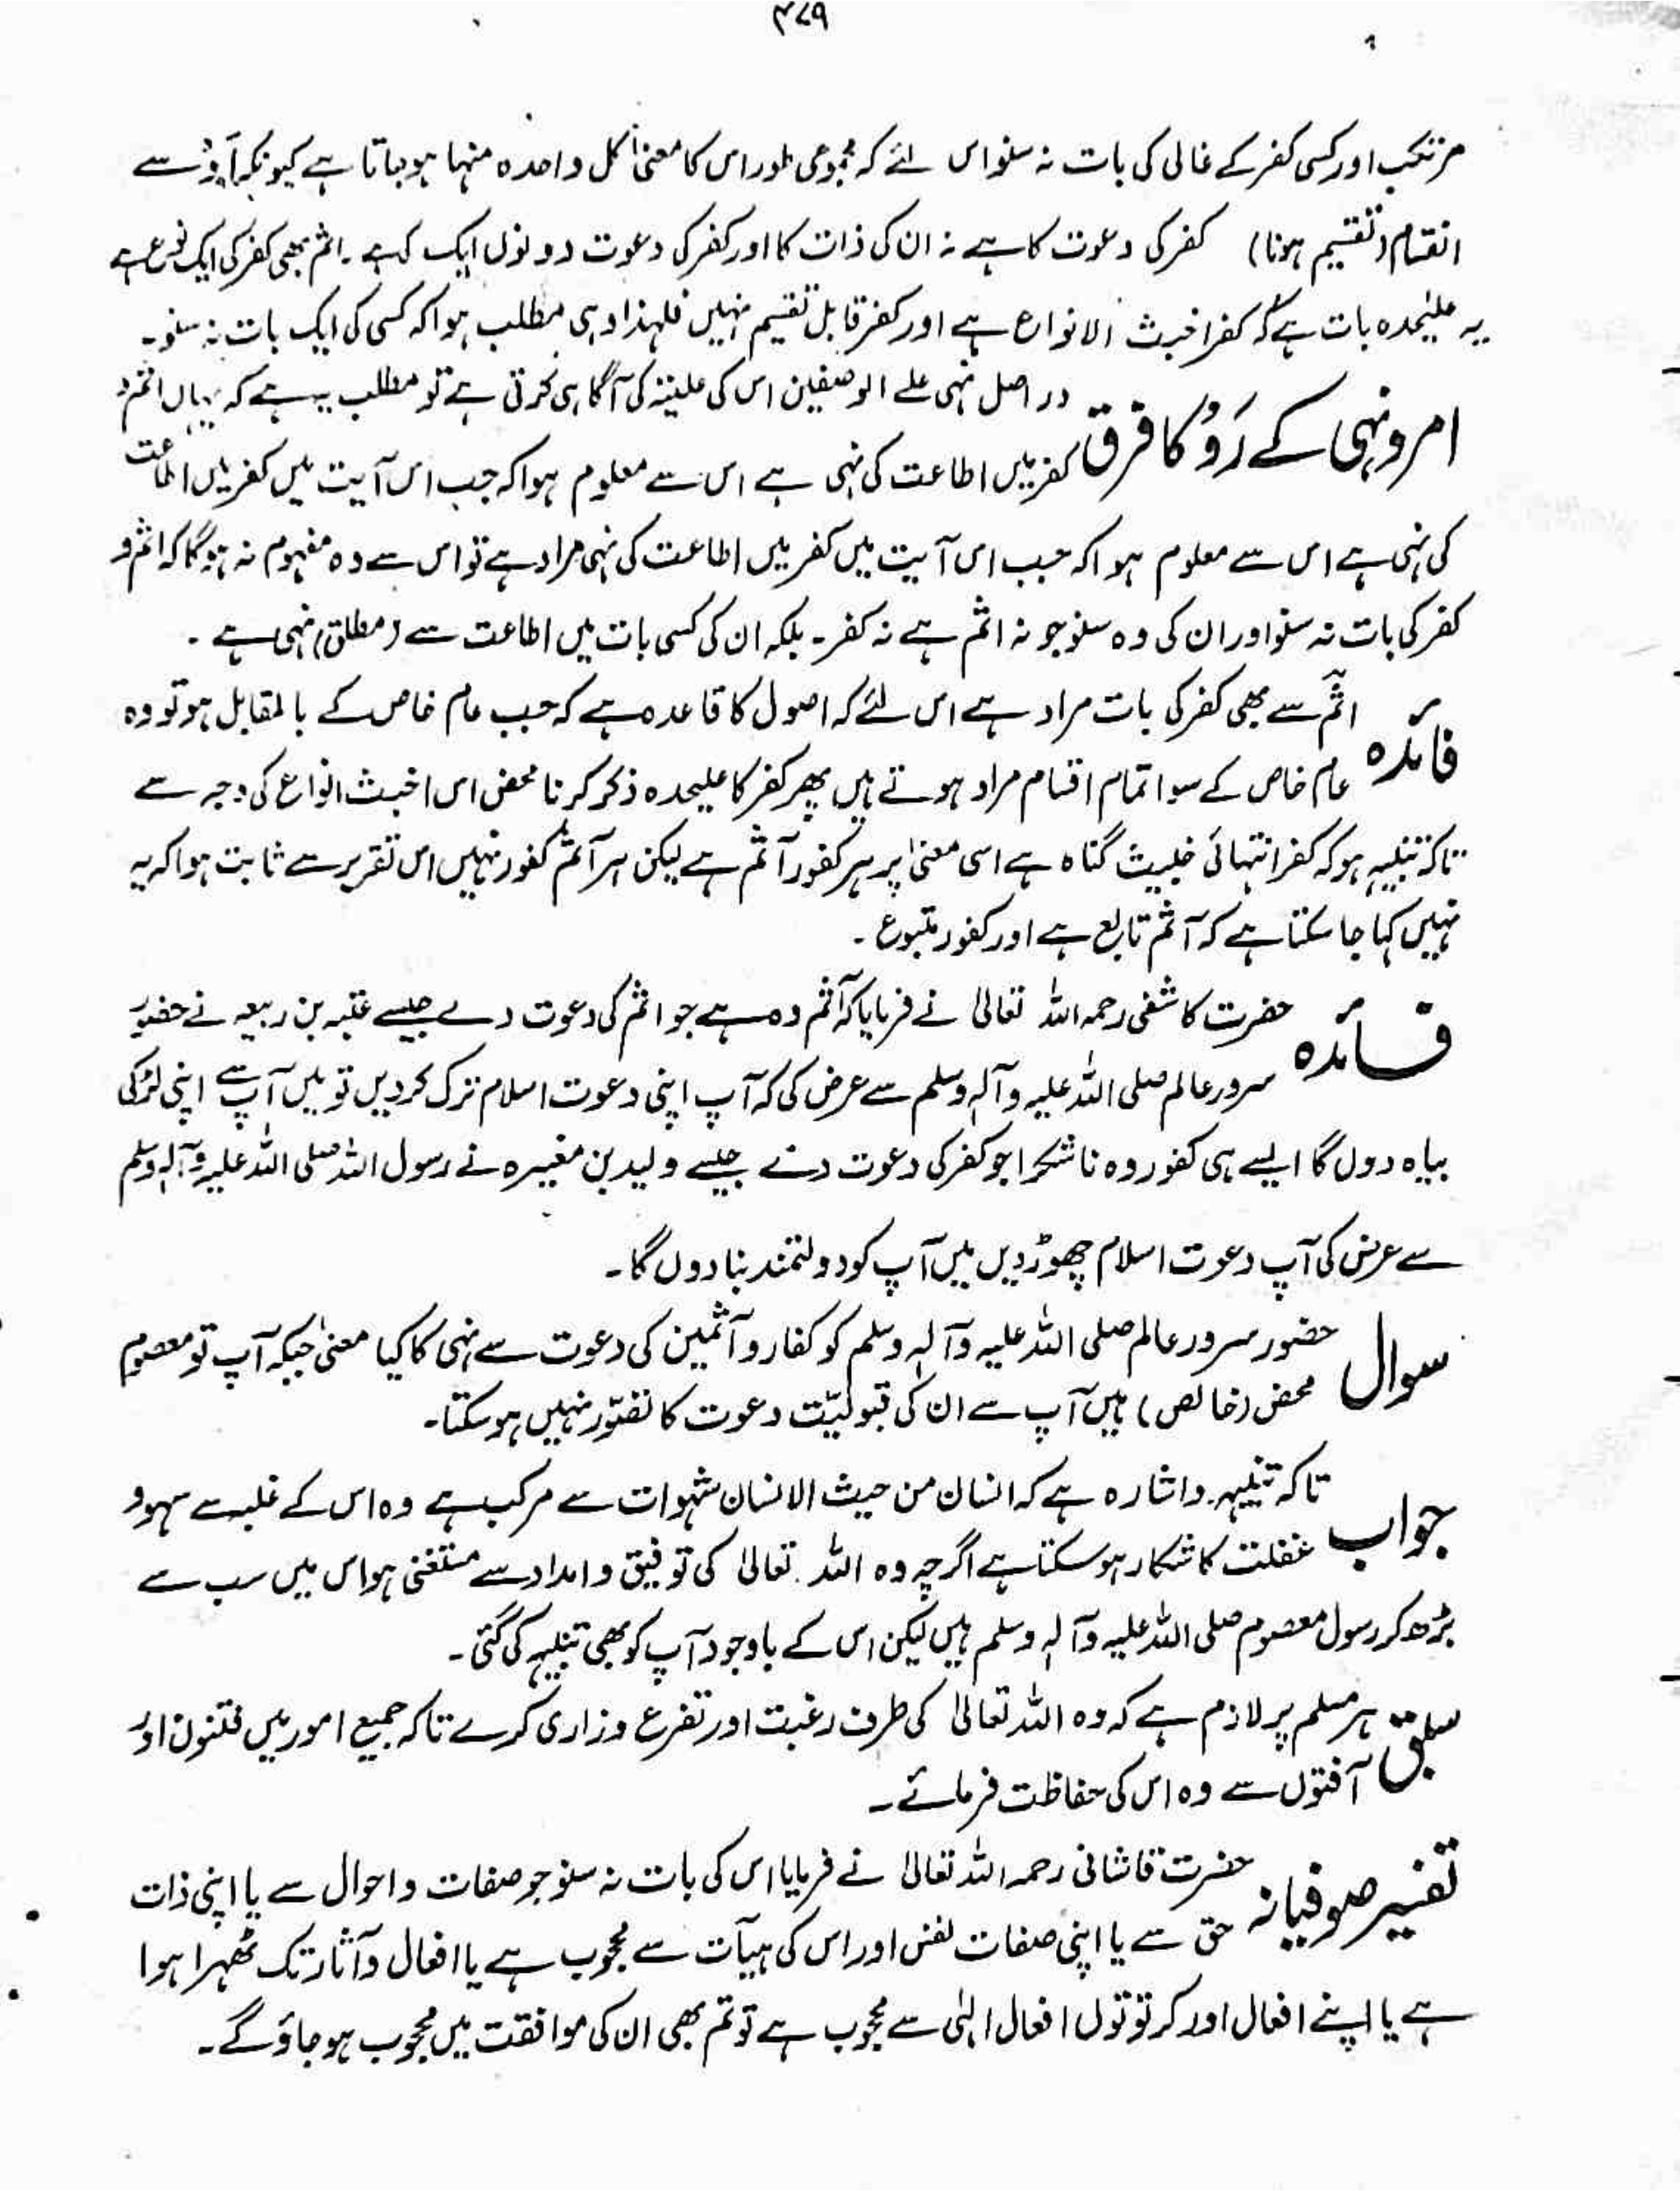 ۳۷۹
مرتکب اور کسی کفر کے غالی کی بات نہ سنو اس لئے کہ مجموعی طور اس کا معنیٰ کل واحدہ منہا ہو جاتا ہے کیونکہ اَوْ سے
انقسام (تقسیم ہونا) کفر کی دعوت کا ہے نہ ان کی ذات کا اور کفر کی دعوت دونوں ایک ہے۔ اثم بھی کفر کی ایک نوع ہے
یہ علیٰحدہ بات ہے کہ کفر اخبث الانواع ہے اور کفر قابل تقسیم نہیں فلہذا وہی مطلب ہوا کہ کسی کی ایک بات نہ سنو۔
امر و نہی کے رَوْ کا فرق در اصل نہی علے الوصفین اس کی علیّت کی آگاہی کرتی ہے تو مطلب یہ ہے کہ یہاں اثم و
کفر میں اطاعت کی نہی ہے اس سے معلوم ہوا کہ جب اس آیت میں کفر میں اطاعت
کی نہی ہے اس سے معلوم ہوا کہ جب اس آیت میں کفر میں اطاعت کی نہی مراد ہے تو اس سے وہ مفہوم نہ ہوگا کہ اثم و
کفر کی بات نہ سنو اور ان کی وہ سنو جو نہ اثم ہے نہ کفر۔ بلکہ ان کی کسی بات میں اطاعت سے (مطلق) نہی ہے ۔
فائدہ اثم سے بھی کفر کی بات مراد ہے اس لئے کہ اصول کا قاعدہ ہے کہ جب عام خاص کے بالمقابل ہو تو وہ
عام خاص کے سوا تمام اقسام مراد ہوتے ہیں پھر کفر کا علیحدہ ذکر کرنا محض اس اخبث انواع کی وجہ سے
تاکہ تنبیہہ ہو کہ کفر انتہائی خبیث گناہ ہے اسی معنیٰ پر ہر کفور آثم ہے لیکن ہر آثم کفور نہیں اس تقریر سے ثابت ہوا کہ یہ
نہیں کہا جا سکتا ہے کہ آثم تابع ہے اور کفور متبوع ۔
فائدہ حضرت کاشفی رحمہ اللہ تعالیٰ نے فرمایا کہ آثم وہ ہے جو اثم کی دعوت دے جیسے عتبہ بن ربیعہ نے حضور
سرور عالم صلی اللہ علیہ وآلہ وسلم سے عرض کی کہ آپ اپنی دعوت اسلام ترک کر دیں تو میں آپ سے اپنی لڑکی
بیاہ دوں گا ایسے ہی کفور وہ ناشکرا جو کفر کی دعوت دے جیسے ولید بن مغیرہ نے رسول اللہ صلی اللہ علیہ وآلہ وسلم
سے عرض کی آپ دعوت اسلام چھوڑ دیں میں آپ کو دولتمند بنا دوں گا۔
سوال حضور سرور عالم صلی اللہ علیہ وآلہ وسلم کو کفار و آثمین کی دعوت سے نہی کا کیا معنیٰ جبکہ آپ تو معصوم
محض (خالص) ہیں آپ سے ان کی قبولیّت دعوت کا تصوّر نہیں ہو سکتا۔
جواب تاکہ تنبیہہ و اشارہ ہے کہ انسان من حیث الانسان شہوات سے مرکب ہے وہ اس کے غلبہ سے سہو و
غفلت کا شکار ہو سکتا ہے اگرچہ وہ اللہ تعالیٰ کی توفیق و امداد سے مستغنی ہو اس میں سب سے
بڑھ کر رسول معصوم صلی اللہ علیہ وآلہ وسلم ہیں لیکن اس کے باوجود آپ کو بھی تنبیہہ کی گئی۔
سبق ہر مسلم پر لازم ہے کہ وہ اللہ تعالیٰ کی طرف رغبت اور تضرع و زاری کرے تاکہ جمیع امور میں فتنوں اور
آفتوں سے وہ اس کی حفاظت فرمائے۔
تفسیر صوفیانہ حضرت قاشانی رحمہ اللہ تعالیٰ نے فرمایا اس کی بات نہ سنو جو صفات و احوال سے یا اپنی ذات
حق سے یا اپنی صفات نفس اور اس کی ہیآت سے محجوب ہے یا افعال و آثار تک ٹھہرا ہوا
ہے یا اپنے افعال اور کرتوتوں افعال الٰہی سے محجوب ہے تو تم بھی ان کی موافقت میں محجوب ہو جاؤ گے۔